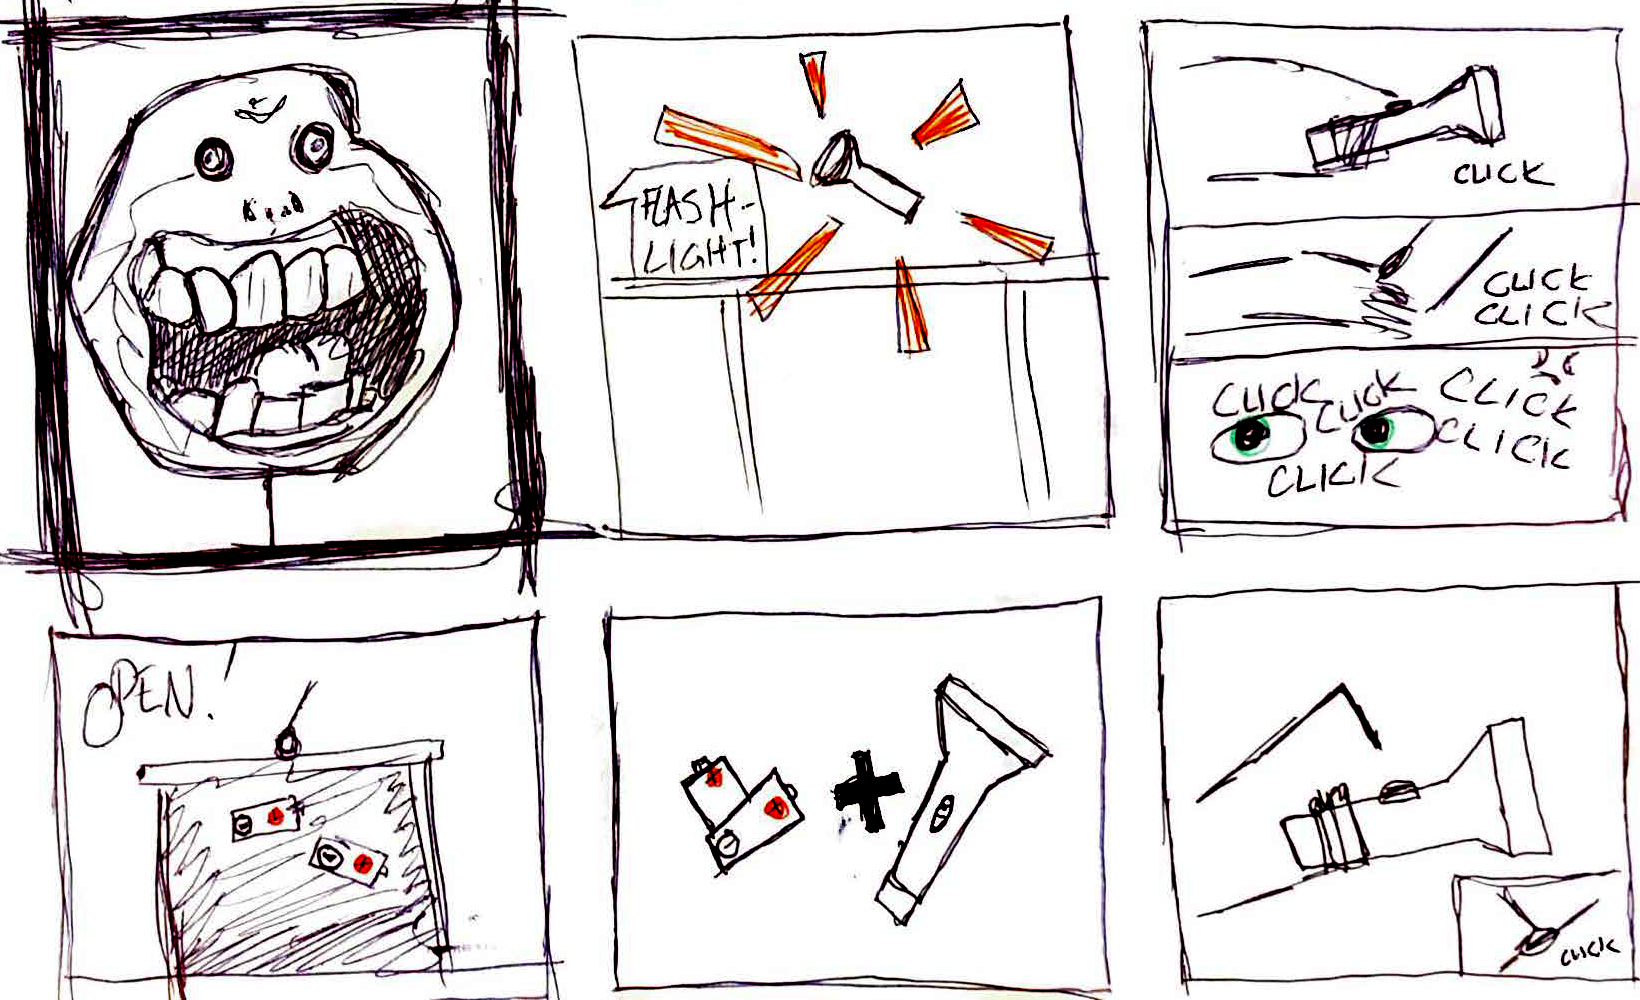 FLASH-
LIGHT!
CLICK
CLICK
CLICK
CLICK CLICK CLICK
CLICK
CLICK
OPEN!
CLICK